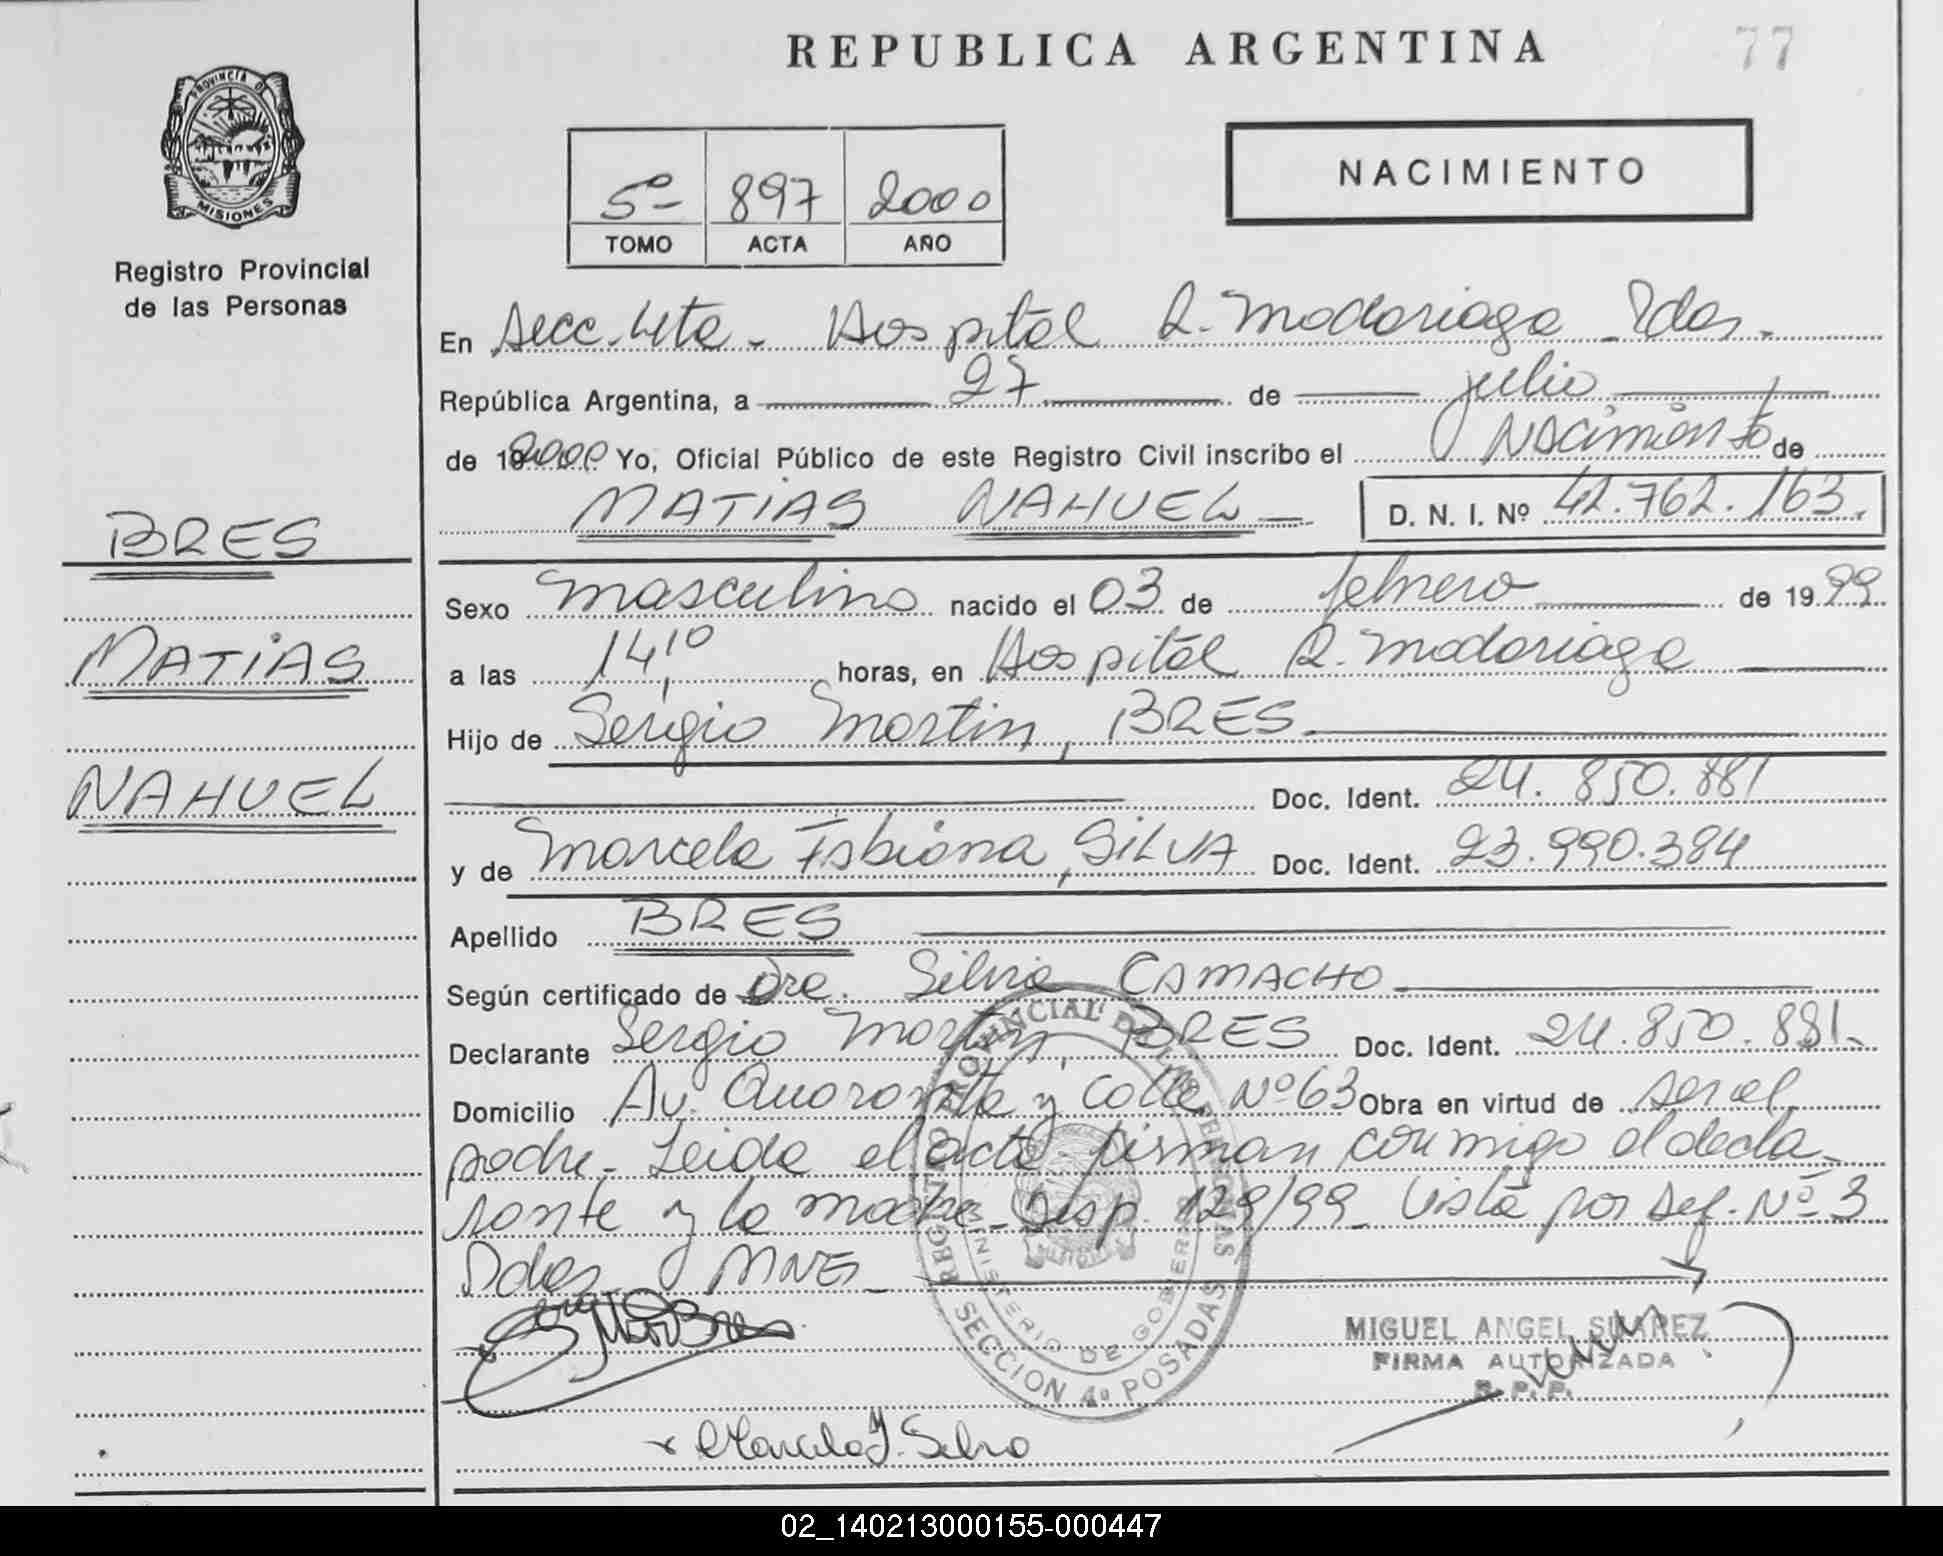 REPUBLICA ARGENTINA
77
PROVINCIA DE
MISIONES
Registro Provincial
de las Personas
NACIMIENTO
5º 897 2000
TOMO ACTA AÑO
En Secc. 4ta. Hospital R. Madariaga - Pdas.
República Argentina, a 27 de julio
de 192000 Yo, Oficial Público de este Registro Civil inscribo el Nacimiento de
MATIAS NAHUEL D. N. I. Nº 41.762.163.
BRES
MATIAS
NAHUEL
Sexo masculino nacido el 03 de febrero de 1999
a las 14,10 horas, en Hospital R. Madariaga
Hijo de Sergio Martin, BRES
Doc. Ident. 24.850.881
y de Marcela Fabiana, SILVA Doc. Ident. 23.990.384
Apellido BRES
Según certificado de Dra. Silvia CAMACHO
Declarante Sergio Martin, BRES Doc. Ident. 24.850.881.
Domicilio Av. Quaranta y Calle Nº 63 Obra en virtud de ser el
padre. Leida el acta firman conmigo el decla-
rante y la madre. Disp. 129/99. Vista por def. Nº 3
Pdas. MNES
REGISTRO PROVINCIAL DE LAS PERSONAS
MINISTERIO DE GOBIERNO
SECCION 4ª POSADAS
MIGUEL ANGEL SUAREZ
FIRMA AUTORIZADA
R. P. P.
Marcela F. Silva
02_140213000155-000447